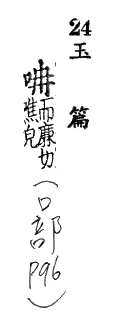 24
玉篇
呥 而廉切
噍皃
（口部
P96）